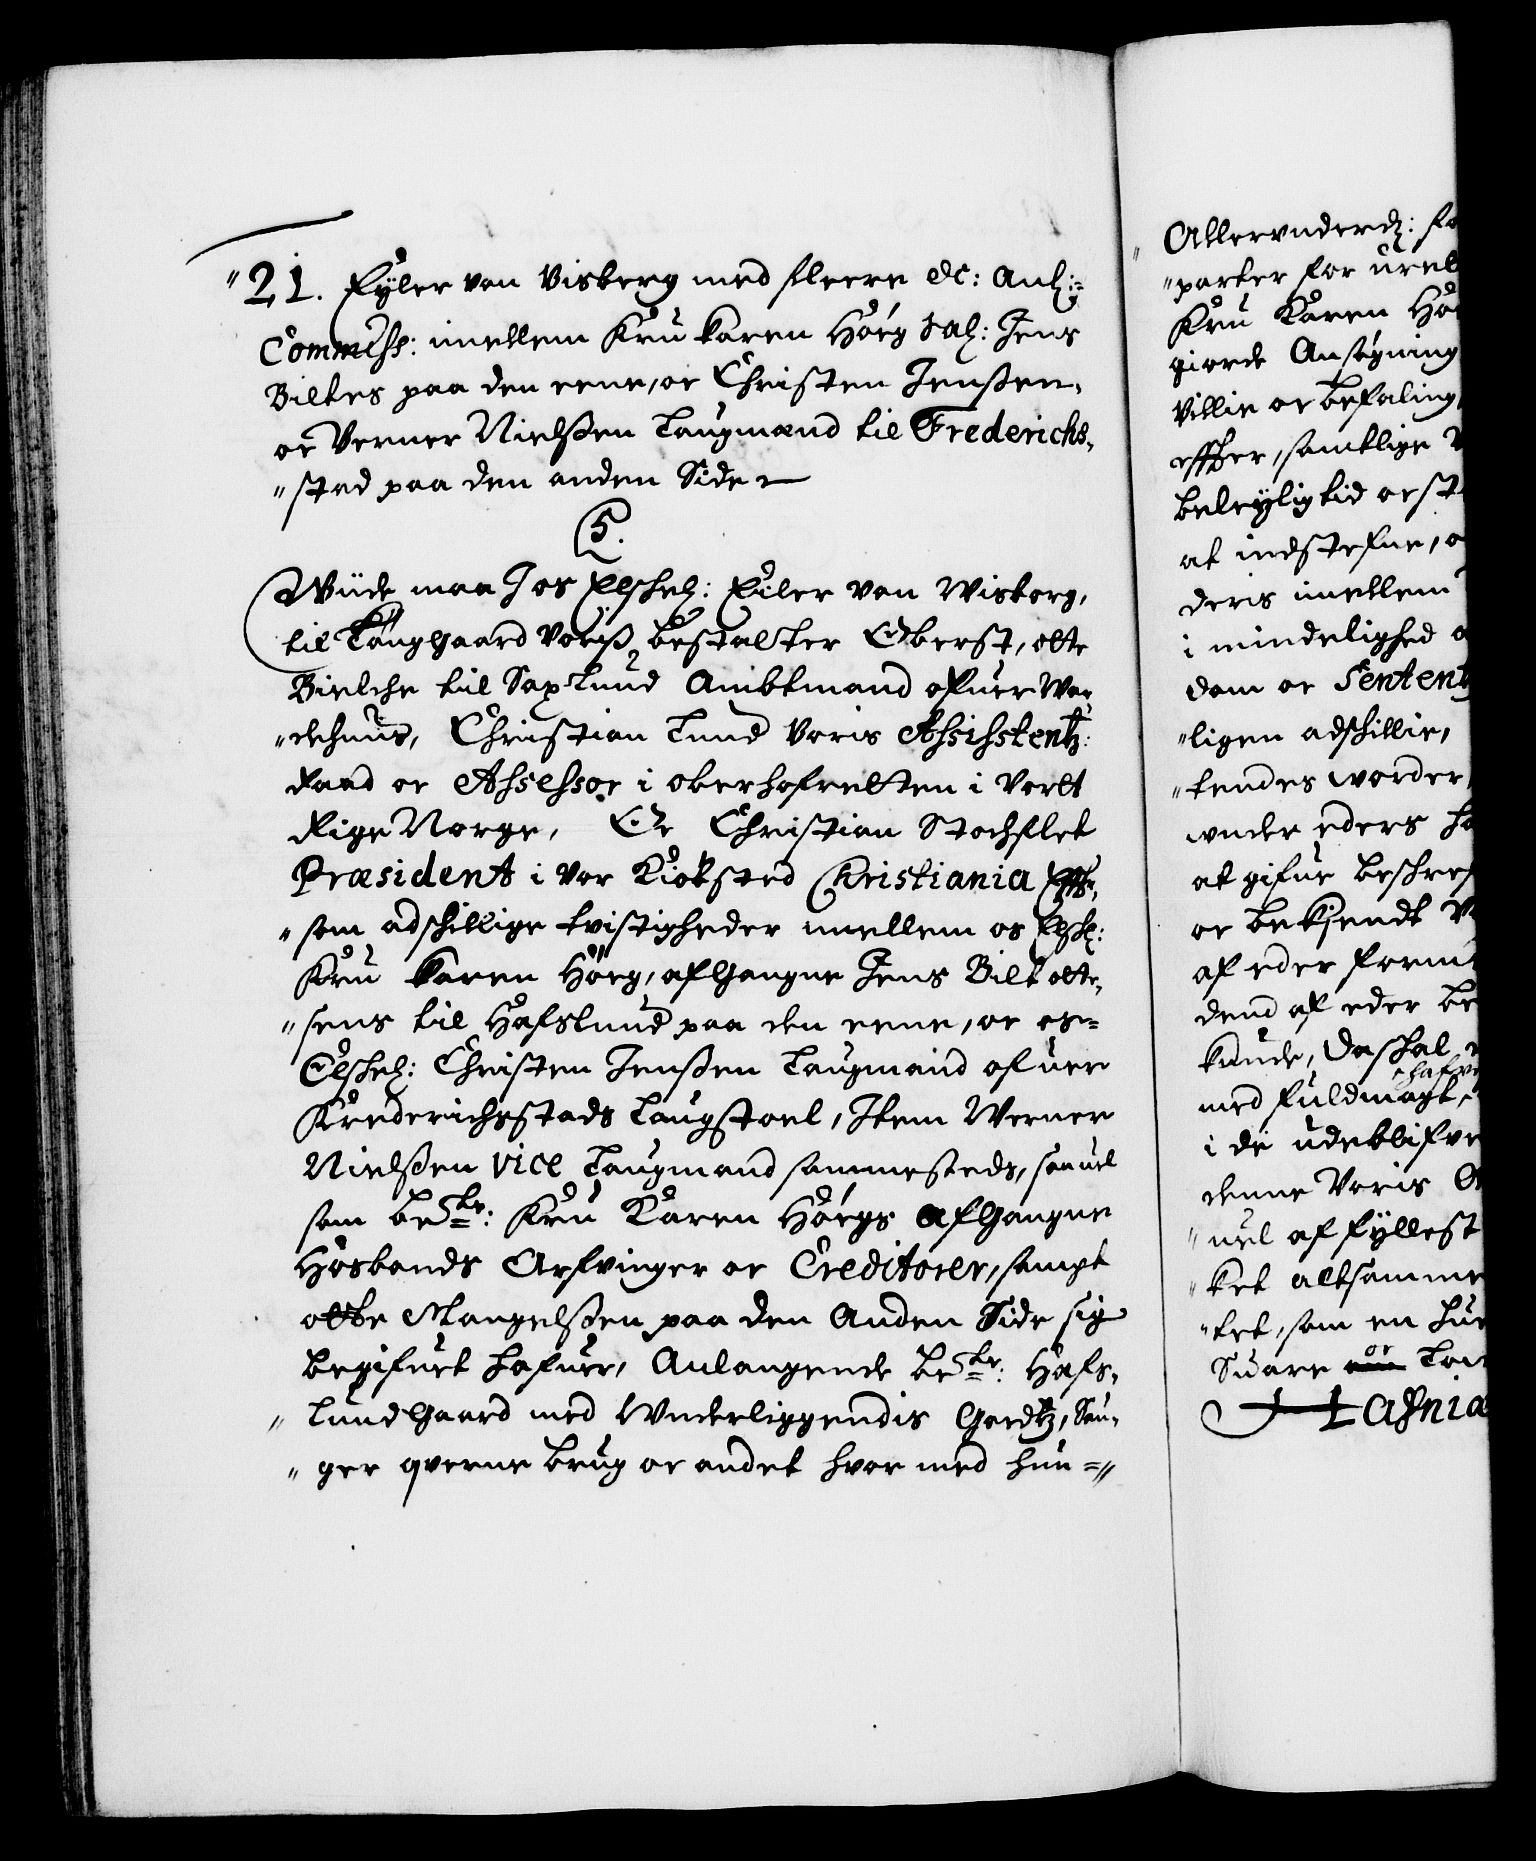 "21. Eyler von Visberg med fleere &c: Anl:=
Commiss: imellem Fru Karen Hörg Sal: Jens
Bilkes paa den eene, oc Christen Jenßen,
oc Verner Nielßen Laugmænd til Frederichs,
"stad paa den anden Side
5.
Wüde maa I os Elschel: Eiler von Wisborg,
til Laugsgaard Voriß bestalter Oberst, otte
Bielche til Saxlund Ambtmand ofuer War
"dehuus, Christian Lund Voris Assisstentz:
Raad oc Assessor i oberhofretten i Vort
Rige Norge, Oc Christian Stochflet
Præsident i Vor Kiøbsted Christiania Effter,
"som adschillige tvistigheder imellem os Elsch:
Fru Karen Hörg, afgangne Jens Bilk otte,
"sens til Hafslund paa den eene, oc os=
Elschel: Christen Jenßen Laugmand ofuer
Frederichsstads Laugstoel, Item Werner
Nielßen Vice Laugmand sammesteds, saauel
som bete: Fru Karen Hörgs Afgangne
Hosbonds Arfvinger oc Creditorer, sampt
otte Mangelßen paa den Anden Side sig
begifuet hafuer, Anlangende bete: Hafs,
"lund Gaard med Underliggendis Godtz, Sau,
"ger qverne brug oc andet hvor med hun="
Allerunderd: fo
"parter for uret
Fru Karen Hör
giorde Ansögning
Villie oc befaling
effter, samtlige
beleylig tid oc st
at indstefne, o
deris imellem
i mindelighed
dom oc Sentent
"ligen adschillie,
"kendes worder,
under eders
at gifue beschref
oc bekiendt
af eder
dend af eder be
kunde, Da schal
hafve
med fuldmagt,
i de udeblifve
denne Voris
"uel af fyllest
"ket altsamme
"tet, som en hue
Suare oc
Hafnia